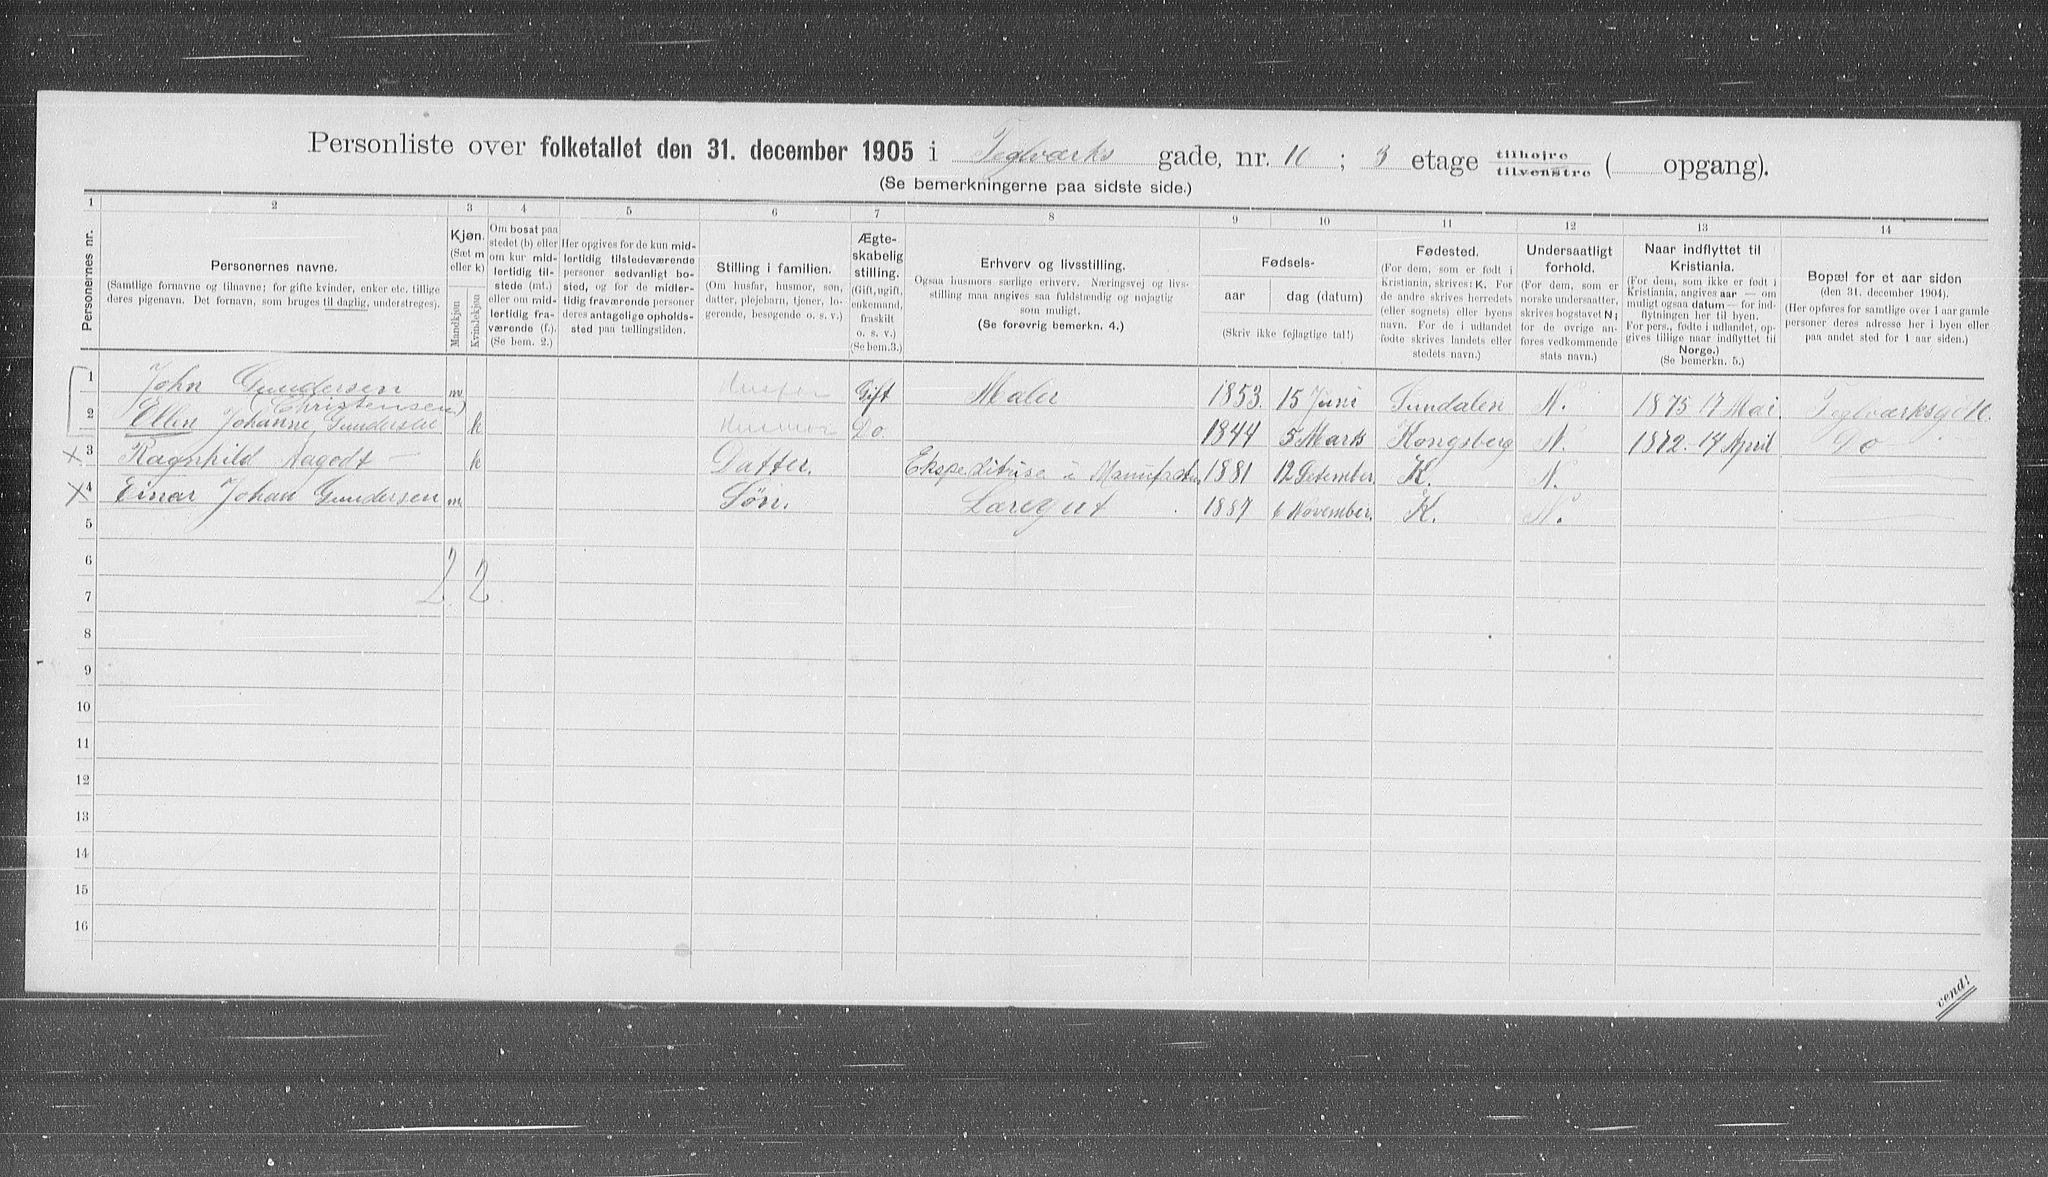 Personliste over folketallet den 31. december 1905 i Teglværks gade, nr. 11 ; 3 etage tilhøjre tilvenstre ( opgang).
(Se bemerkningerne paa sidste side.)
1 2 3 4 5 6 7 8 9 10 11 12 13 14
Personernes nr.
Personernes navne.
(Samtlige fornavne og tilnavne; for gifte kvinder, enker etc. tillige
deres pigenavn. Det fornavn, som bruges til daglig, understreges).
Kjøn.
(Sæt m
eller k)
Mandkjøn
Kvindekjøn
Om bosat paa
stedet (b) eller
om kur mid-
lertidig til-
stede (mt.)
eller om mid-
lertidig fra-
værende (f.).
(Se bem. 2.)
Her opgives for de kun mid-
lertidig tilstedeværende
personer sedvanligt bo-
sted, og for de midler-
tidig fraværende personer
deres antagelige opholds-
sted paa tællingstiden.
Stilling i familien.
(Om husfar, husmor, søn,
datter, plejebarn, tjener, lo-
gerende, besøgende o. s. v.)
Ægte-
skabelig
stilling.
(Gift, ugift,
enkemand,
fraskilt
o. s. v.)
(Se bem.3.)
Erhverv og livsstilling.
Ogsaa husmors særlige erhverv. Næringsvej og livs-
stilling maa angives saa fuldstændig og nøjagtig
som muligt.
(Se forøvrig bemerkn. 4.)
Fødsels-
aar
dag (datum)
(Skriv ikke fejlagtige tal!)
Fødested.
(For dem, som er født i
Kristiania, skrives: K. For
de andre skrives herredets
(eller sognets) eller byens
navn. For de i udlandet
fødte skrives landets eller
stedets navn.)
Undersaatligt
forhold.
(For dem, som er
norske undersaatter,
skrives bogstavet N;
for de øvrige an-
føres vedkommende
stats navn.)
Naar indflyttet til
Kristiania.
(For dem, som ikke er født i
Kristiania, angives aar — om
muligt ogsaa datum — for ind-
flytningen her til byen.
For pers., fødte i udlandet, op-
gives tillige naar indflyttet til
Norge.)
(Se bemerkn. 5.)
Bopæl for et aar siden
(den 31. december 1904).
(Her opføres for samtlige over 1 aar gamle
personer deres adresse her i byen eller
paa andet sted for 1 aar siden.)
1 John Gundersen m Husfar Gift Maler 1853. 15 Juni Sundalen N. 1875 17 Mai. Teglværksg. 11.
(Christensen)
2 Ellen Johanne Gundersen k Husmor Do. 1844 5 Marts Kongsberg N. 1872. 14 April Do
3 Ragnhild Aagodt — k Datter. Ekspeditrise i Manufaktur 1881 12 Desember. K. N.
4 Einar Johan Gundersen m Søn. Læregut 1887 6 November. K. N.
5
6
2 2
7
8
9
10
11
12
13
14
15
16
vend!